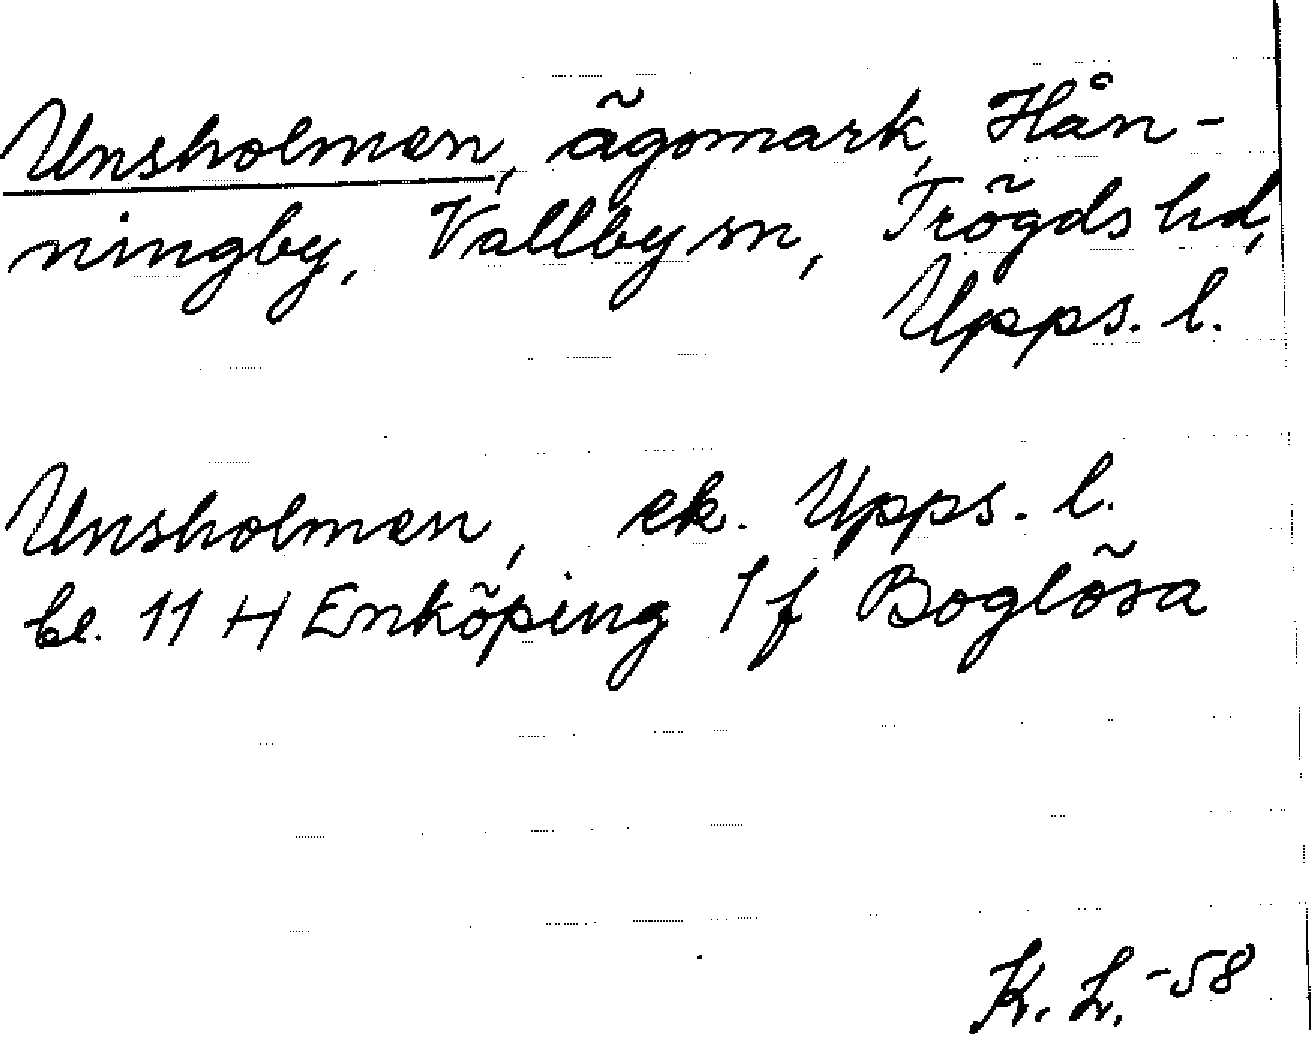 Unsholmen, ägomark, Hån-
ningby, Vallby sn, Trögds hd,
Upps. l.
Unsholmen, ek. Upps. l.
bl. 11 H Enköping 1 f Boglösa
K. L. -58